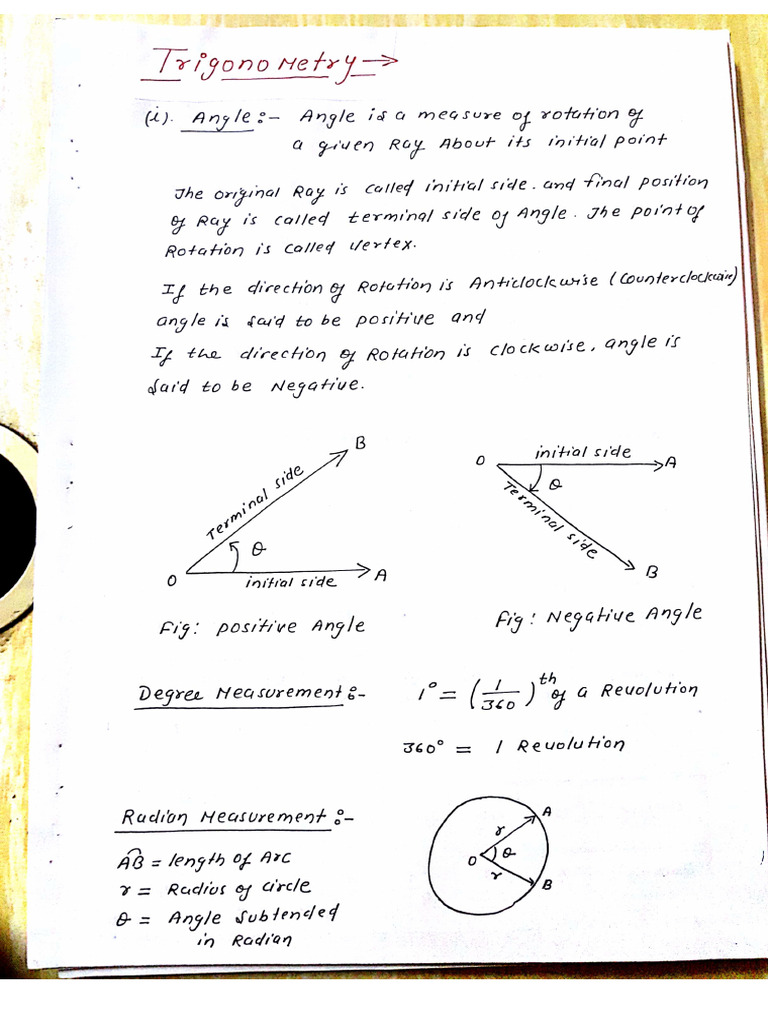 Trigonometry →
(i). Angle :- Angle is a measure of rotation of
a given Ray About its initial point
The original Ray is called initial side. and final position
of Ray is called terminal side of Angle. The point of
Rotation is called vertex.
If the direction of Rotation is Anticlockwise (Counterclockwise)
angle is said to be positive and
If the direction of Rotation is clockwise, angle is
said to be Negative.
B
Terminal side
θ
O
initial side
A
Fig: positive Angle
O
initial side
A
θ
Terminal side
B
Fig: Negative Angle
Degree Measurement :- 1° = (1/360)th of a Revolution
360° = 1 Revolution
Radian Measurement :-
A͡B = length of Arc
r = Radius of circle
θ = Angle subtended
in Radian
A
r
O
θ
r
B